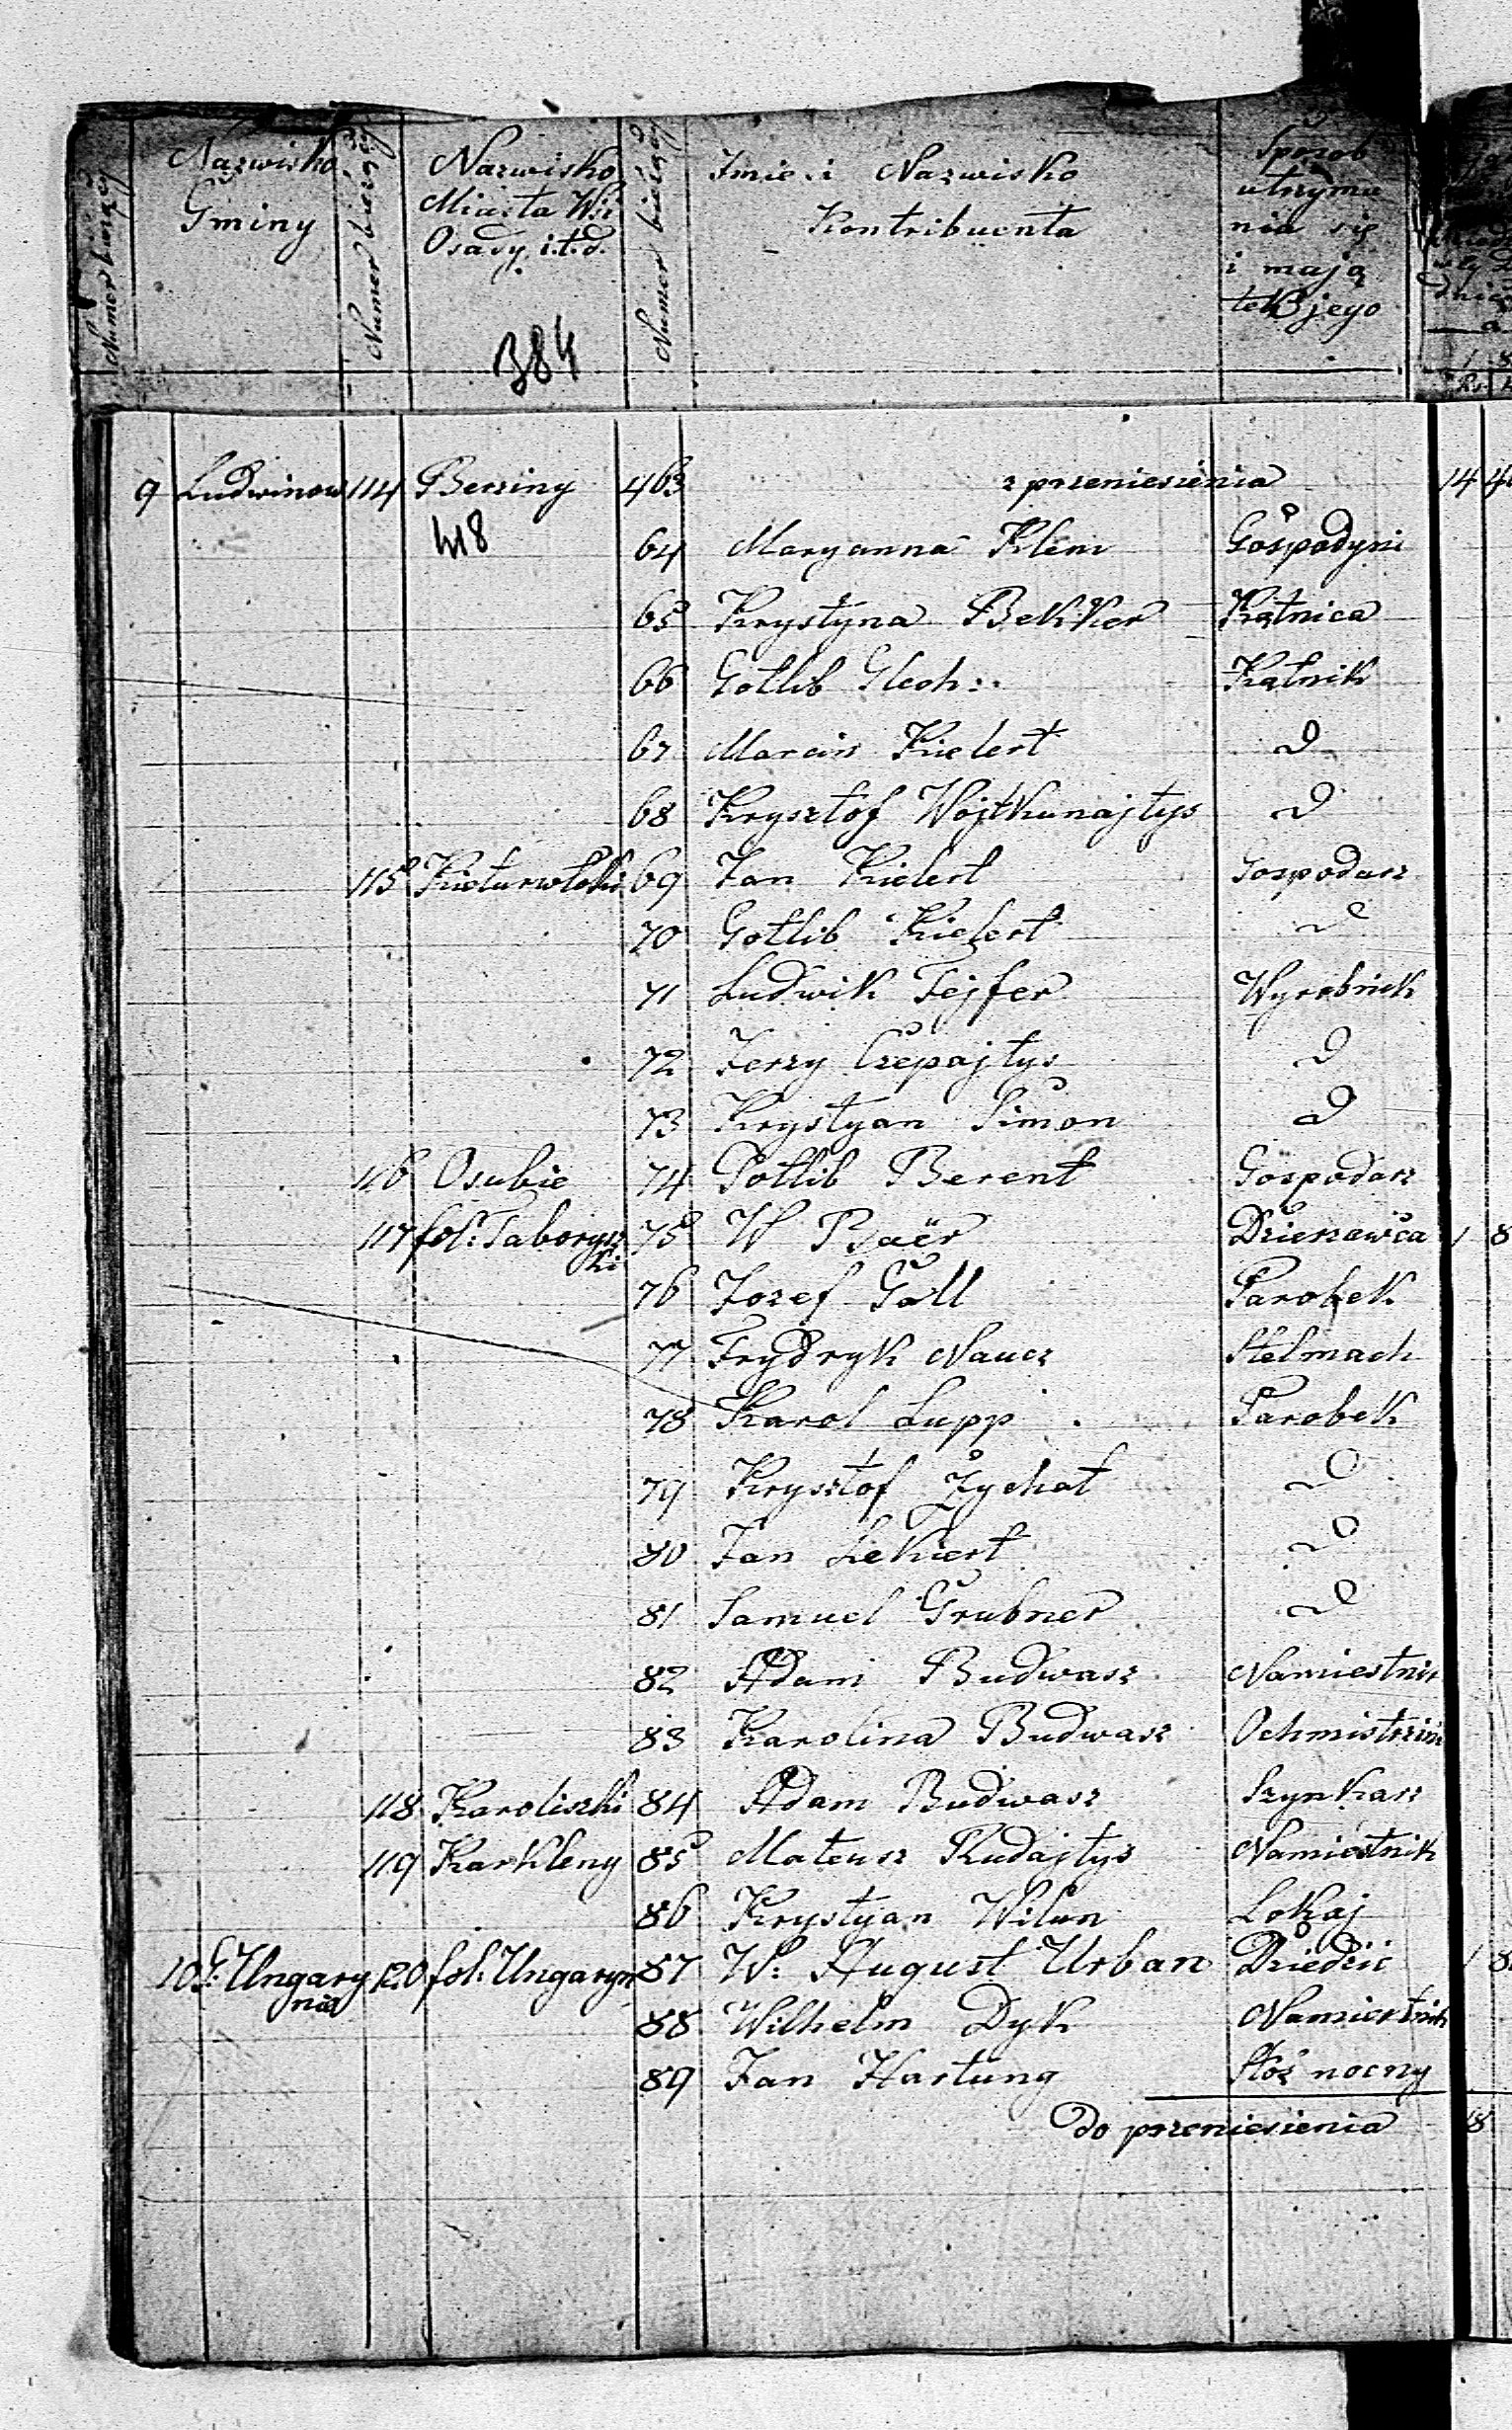 Numer bieżący
Nazwisko Gminy
Numer bieżący
Nazwisko Miasta Wsi Osady i.t.d.
384
Numer bieżący
Imie i Nazwisko Kontribuenta
Sposob utrzyma nia się i mają tek jego
9 Ludwinow 114 Berziny 463 z przeniesienia 14
418 64 Maryanna Klem Gospodyni
65 Krystyna Bekker Kątnica
66 Gotlib Glech: Kątnik
67 Marcin Kielert D
68 Krysztof Wojtkunajtys D
115 69 Jan Kielert Gospodarz
70 Gotlib Kielert D
71 Ludwik Fejfer Wyrobnik
72 Jerzy Czepajtys D
73 Krystyan Simon D
116 Osubie 74 Gotlib Berent Gospodarz
117 fol: Taborysz 75 W Baër Dzierzawca 1 8
ki
76 Jozef Goll Parobek
77 Frydryk Naucz Stelmach
78 Karol Lupp Parobek
79 Krysztof Zychat D
80 Jan Lekiert D
81 Samuel Grubner D
82 Adam Budwasz Namiestnik
83 Karolina Budwasz Ochmistrzini
118 Karoliszki 84 Adam Budwasz Szynkarz
119 Karkleny 85 Mateusz Rudajtys Namiestnik
86 Krystyan Wilun Lokaj
10 G: Ungary 120 fol: Ungaryn 87 W: August Urban Dziedzic 1 8
nia
88 Wilhelm Dyk Namiestnik
89 Jan Hartung Stóż nocny
do przeniesienia 18